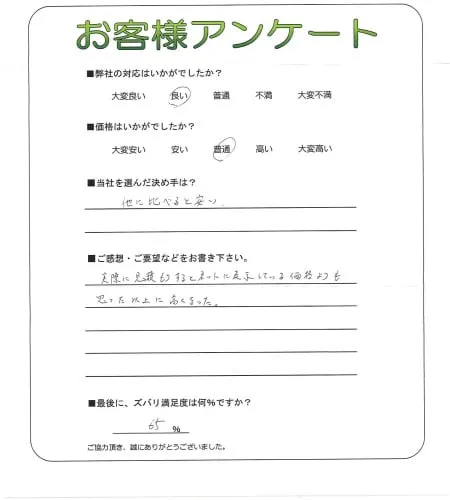 お客様アンケート
■弊社の対応はいかがでしたか？
大変良い 良い 普通 不満 大変不満
■価格はいかがでしたか？
大変安い 安い 普通 高い 大変高い
■当社を選んだ決め手は？
他に比べると安い。
■ご感想・ご要望などをお書き下さい。
実際に見積もりするとネットに表示している価格よりも
思ってた以上に高くなった。
■最後に、ズバリ満足度は何%ですか？
65 %
ご協力頂き、誠にありがとうございました。